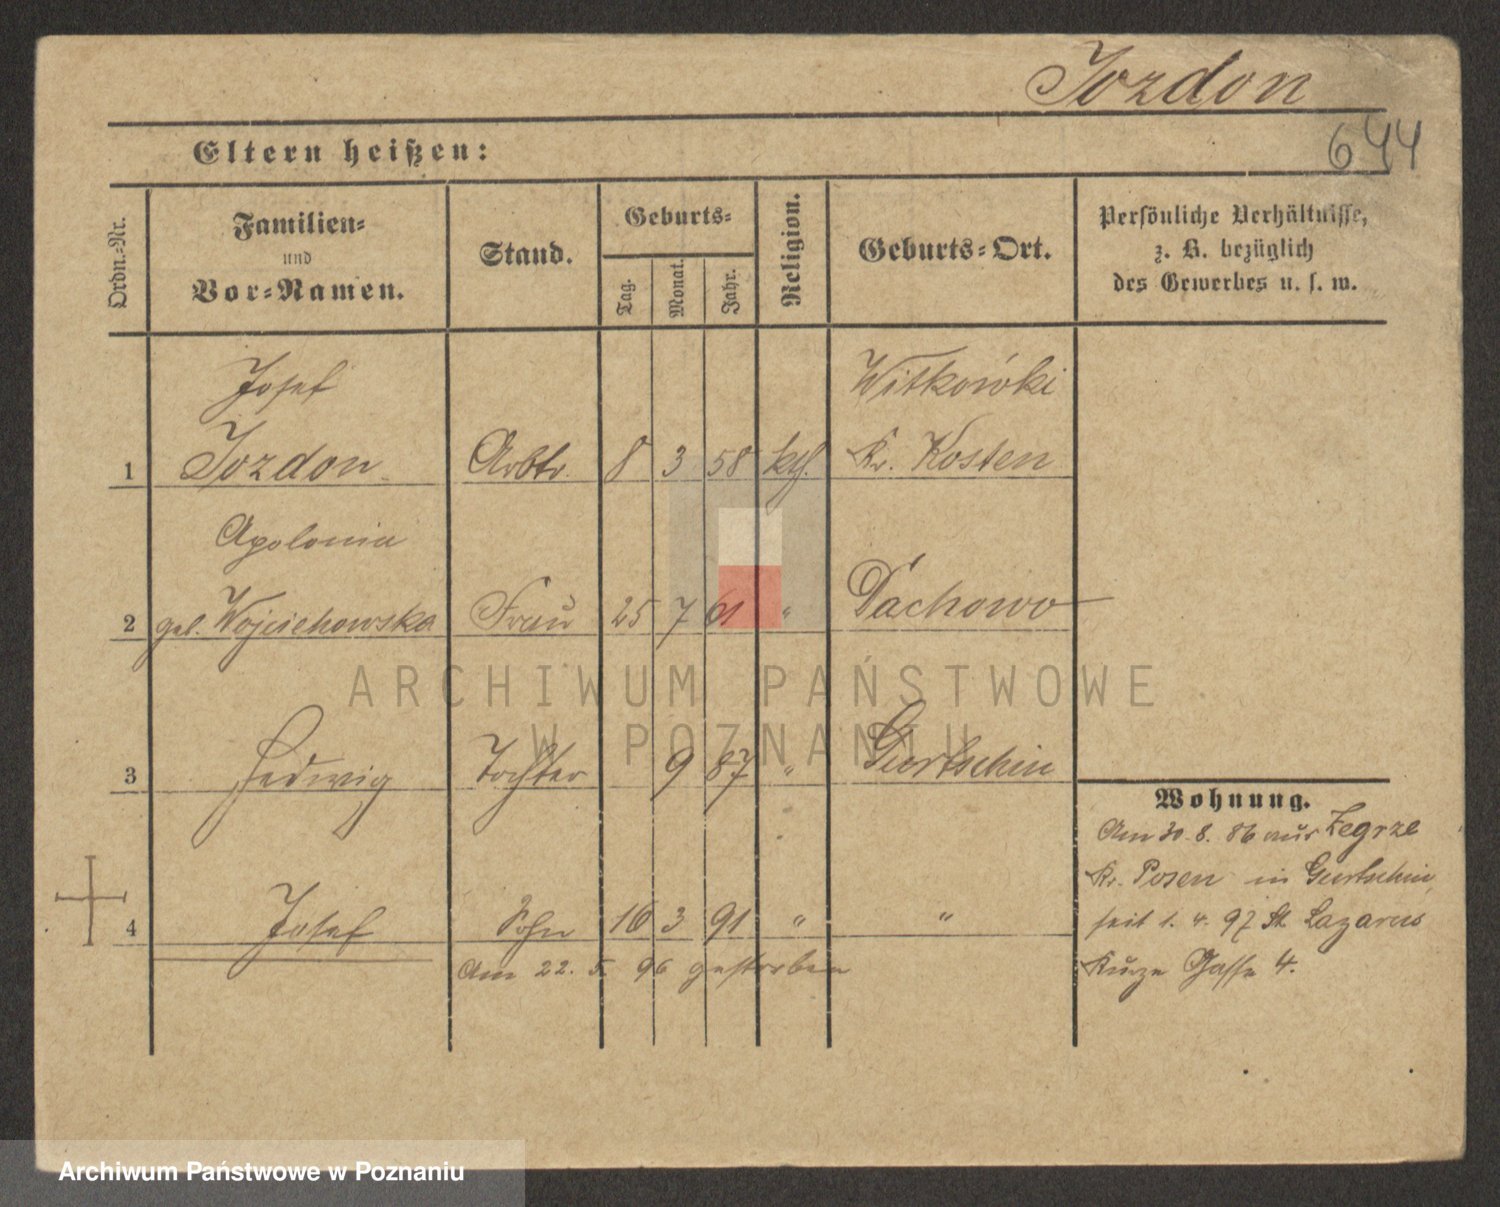 Jozdon
644
Eltern heißen:
Ordn.-Nr.
Familien-
und
Vor-Namen.
Stand.
Geburts-
Tag.
Monat.
Jahr.
Religion.
Geburts-Ort.
Persönliche Verhältnisse,
z. B. bezüglich
des Gewerbes u. s. w.
Josef Witkówki
1 Jozdon Arbtr. 8 3 58 kth. Kr. Kosten
Apolonia
2 geb. Wojciehowska Frau 25 7 61 " Dachowo
ARCHIWUM PAŃSTWOWE
W POZNANIU
3 Hedwig Tochter 9 87 " Gurtschin
Wohnung.
Am 30. 8. 86 aus Zegrze
Kr. Posen in Gurtschin,
4 Josef Sohn 16 3 91 " "
seit 1. 4. 97 St. Lazarus
Am 22. 5. 96 gestorben
Kurze Gasse 4.
Archiwum Państwowe w Poznaniu